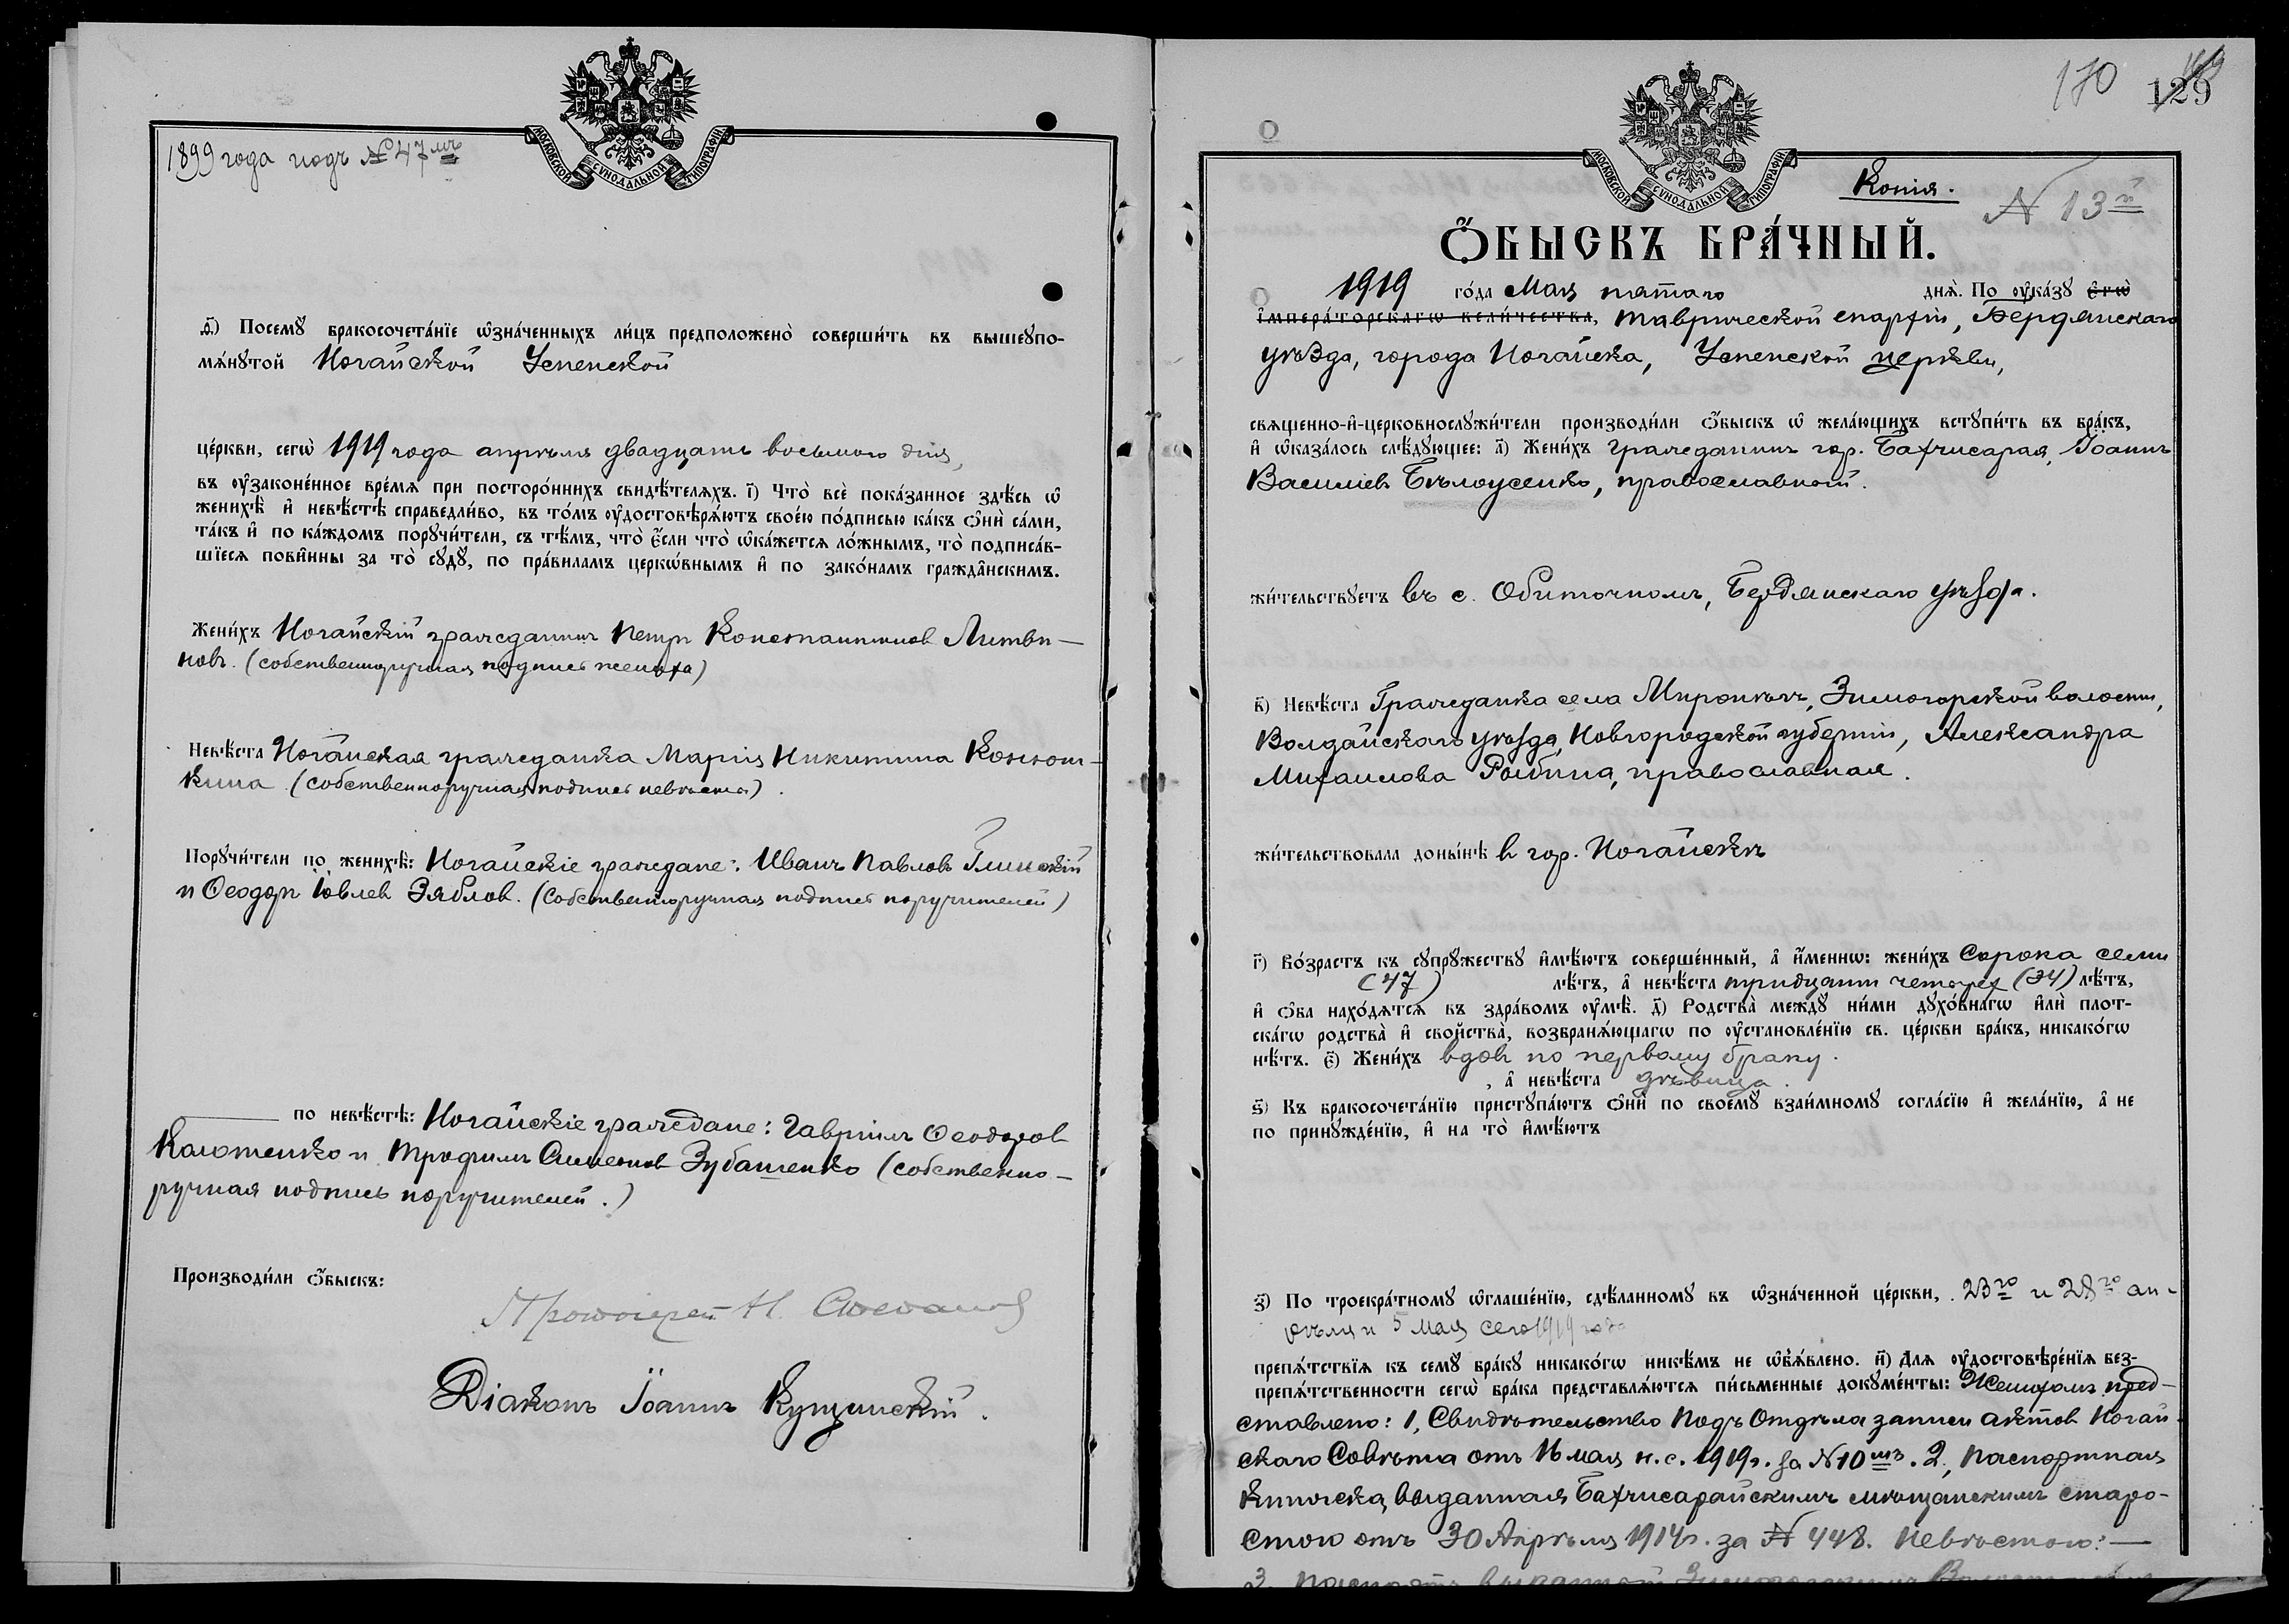 1899 года подъ №47мъ
МОСКОВСКОЙ СѴНОДАЛЬНОЙ ТИПОГРАФІИ
ѳ҃) Посемꙋ бракосочета́нїе ѡзна́ченныхъ ли́цъ предположено̀ соверши́ть въ вышеꙋпо-
мѧ́нꙋтой Ногайской Успенской
це́ркви, сегѡ̀ 1919 года апрѣля двадцать восьмого дня,
въ ᲂу҆зако́нѣнное вре́мѧ при посторо́ннихъ свидѣ́телѧхъ. і҃) Что̀ всѐ пока́занное здѣ́сь ѡ
женихѣ̀ и҆ невѣ́стѣ справедли́во, въ то́мъ ᲂу҆достовѣрѧ́ютъ свое́ю по́дписью ка́къ ѻ҆нѝ са́ми,
та́къ и҆ по ка́ждомъ порꙋчи́тели, съ тѣ́мъ, что̀ є҆́сли что̀ ѡ҆ка́жетсѧ ло́жнымъ, то̀ подписа́в-
шїесѧ пови́нны за то̀ сꙋдꙋ̀, по пра́виламъ церкѡ́внымъ и҆ по зако́намъ гражда̑нскимъ.
Жени́хъ Ногайскій гражданинъ Петръ Константиновъ Литви-
новъ. (собственноручная подпись жениха)
Невѣ́ста Ногайская гражданка Марія Никитина Конюш-
кина (собственноручная подпись невѣсты).
Порꙋчи́тели по женихѣ̀: Ногайскіе граждане: Иванъ Павловъ Глинскій
и Ѳеодоръ Іовлев Зяблов. (Собственноручная подпись поручителей)
по невѣ́стѣ: Ногайскіе граждане: Гавріилъ Ѳеодоров
и Трофимъ Симеонов Зубашенко (собственно-
ручная подпись поручителей.)
Производи́ли ѻ҆́быскъ:
Протоіерей Н.
Діаконъ Іоаннъ Кущинскій.
170
129
МОСКОВСКОЙ СѴНОДАЛЬНОЙ ТИПОГРАФІИ
Копія.
N 13й
Ѻ҆́БЫСКЪ БРА́ЧНЫЙ.
1919 го́да Мая пятаго днѧ̀. По ᲂу҆ка́зꙋ є҆гѡ̀
і҆мпера́торскагѡ вели́чества, Таврической епархіи, Бердянскаго
уѣзда, города Ногайска, Успенской церкви,
свѧщенно-и҆-церковнослꙋжи́тели производи́ли ѻ҆́быскъ ѡ жела́ющихъ встꙋпи́ть въ бра́къ,
и҆ ѡ҆каза́лось слѣ́дꙋющее: а҃) Жени́хъ гражданинъ гор. Бахчисарая, Іоаннъ
Василіев Бѣлоусенко, православный.
жи́тельствꙋетъ въ с. Обиточномъ, Бердянскаго уѣзда.
в҃) Невѣ́ста Гражданка села Миронѣгъ, Зимогорской волости,
Волдайскаго уѣзда, Новгородской губерніи, Александра
Михаилова Рыбина, православная.
жи́тельствовала доны́нѣ в гор. Ногайскѣ
г҃) Во́зрастъ къ сꙋпрꙋжествꙋ и҆мѣ́ютъ соверше́нный, а҆ и҆́меннѡ: жени́хъ Сорока семи
(47) лѣ́тъ, а҆ невѣ́ста тридцати четырех (34) лѣ́тъ,
и҆ ѻ҆́ба нахо́дѧтсѧ въ здра́вомъ ᲂу҆мѣ̀. д҃) Родства̀ междꙋ̀ ни́ми дꙋхо́внагѡ и҆лѝ плот-
ска́гѡ родства̀ и҆ свойства̀, возбранѧ́ющагѡ по ᲂу҆становле́нїю св. це́ркви бра́къ, никако́гѡ
нѣ́тъ. є҃) Жени́хъ вдов по первому браку.
, а҆ невѣ́ста дѣвица.
ѕ҃) Къ бракосочета́нїю пристꙋпа́ютъ ѻ҆нѝ по своемꙋ̀ взаи́мномꙋ согла́сїю и҆ жела́нїю, а҆ не
по принꙋжде́нїю, и҆ на то̀ и҆мѣ́ютъ
з҃) По троекра́тномꙋ ѡ҆глаше́нїю, сдѣ́ланномꙋ въ ѡзна́ченной це́ркви, 23го и 28го ап-
рѣля и 5 мая сего 1919 года
препѧ́тствїѧ къ семꙋ̀ бра́кꙋ никако́гѡ никѣ́мъ не ѡ҆бъѧ́влено. и҃) Длѧ ᲂу҆достовѣре́нїѧ без-
препѧ́тственности сегѡ̀ бра́ка представлѧ́ютсѧ пи́сьменные докꙋме́нты: Женихомъ пред-
ставлено: 1, Свидѣтельство Подъ Отдѣла записи актов Ногай-
скаго Совѣта отъ 16 мая н.с. 1919г. за N10мъ. 2, Паспортная
книжска, выданная Бахчисарайскимъ мѣщанскимъ старо-
стою отъ 30 Апрѣля 1914г. за № 448. Невѣстою:—